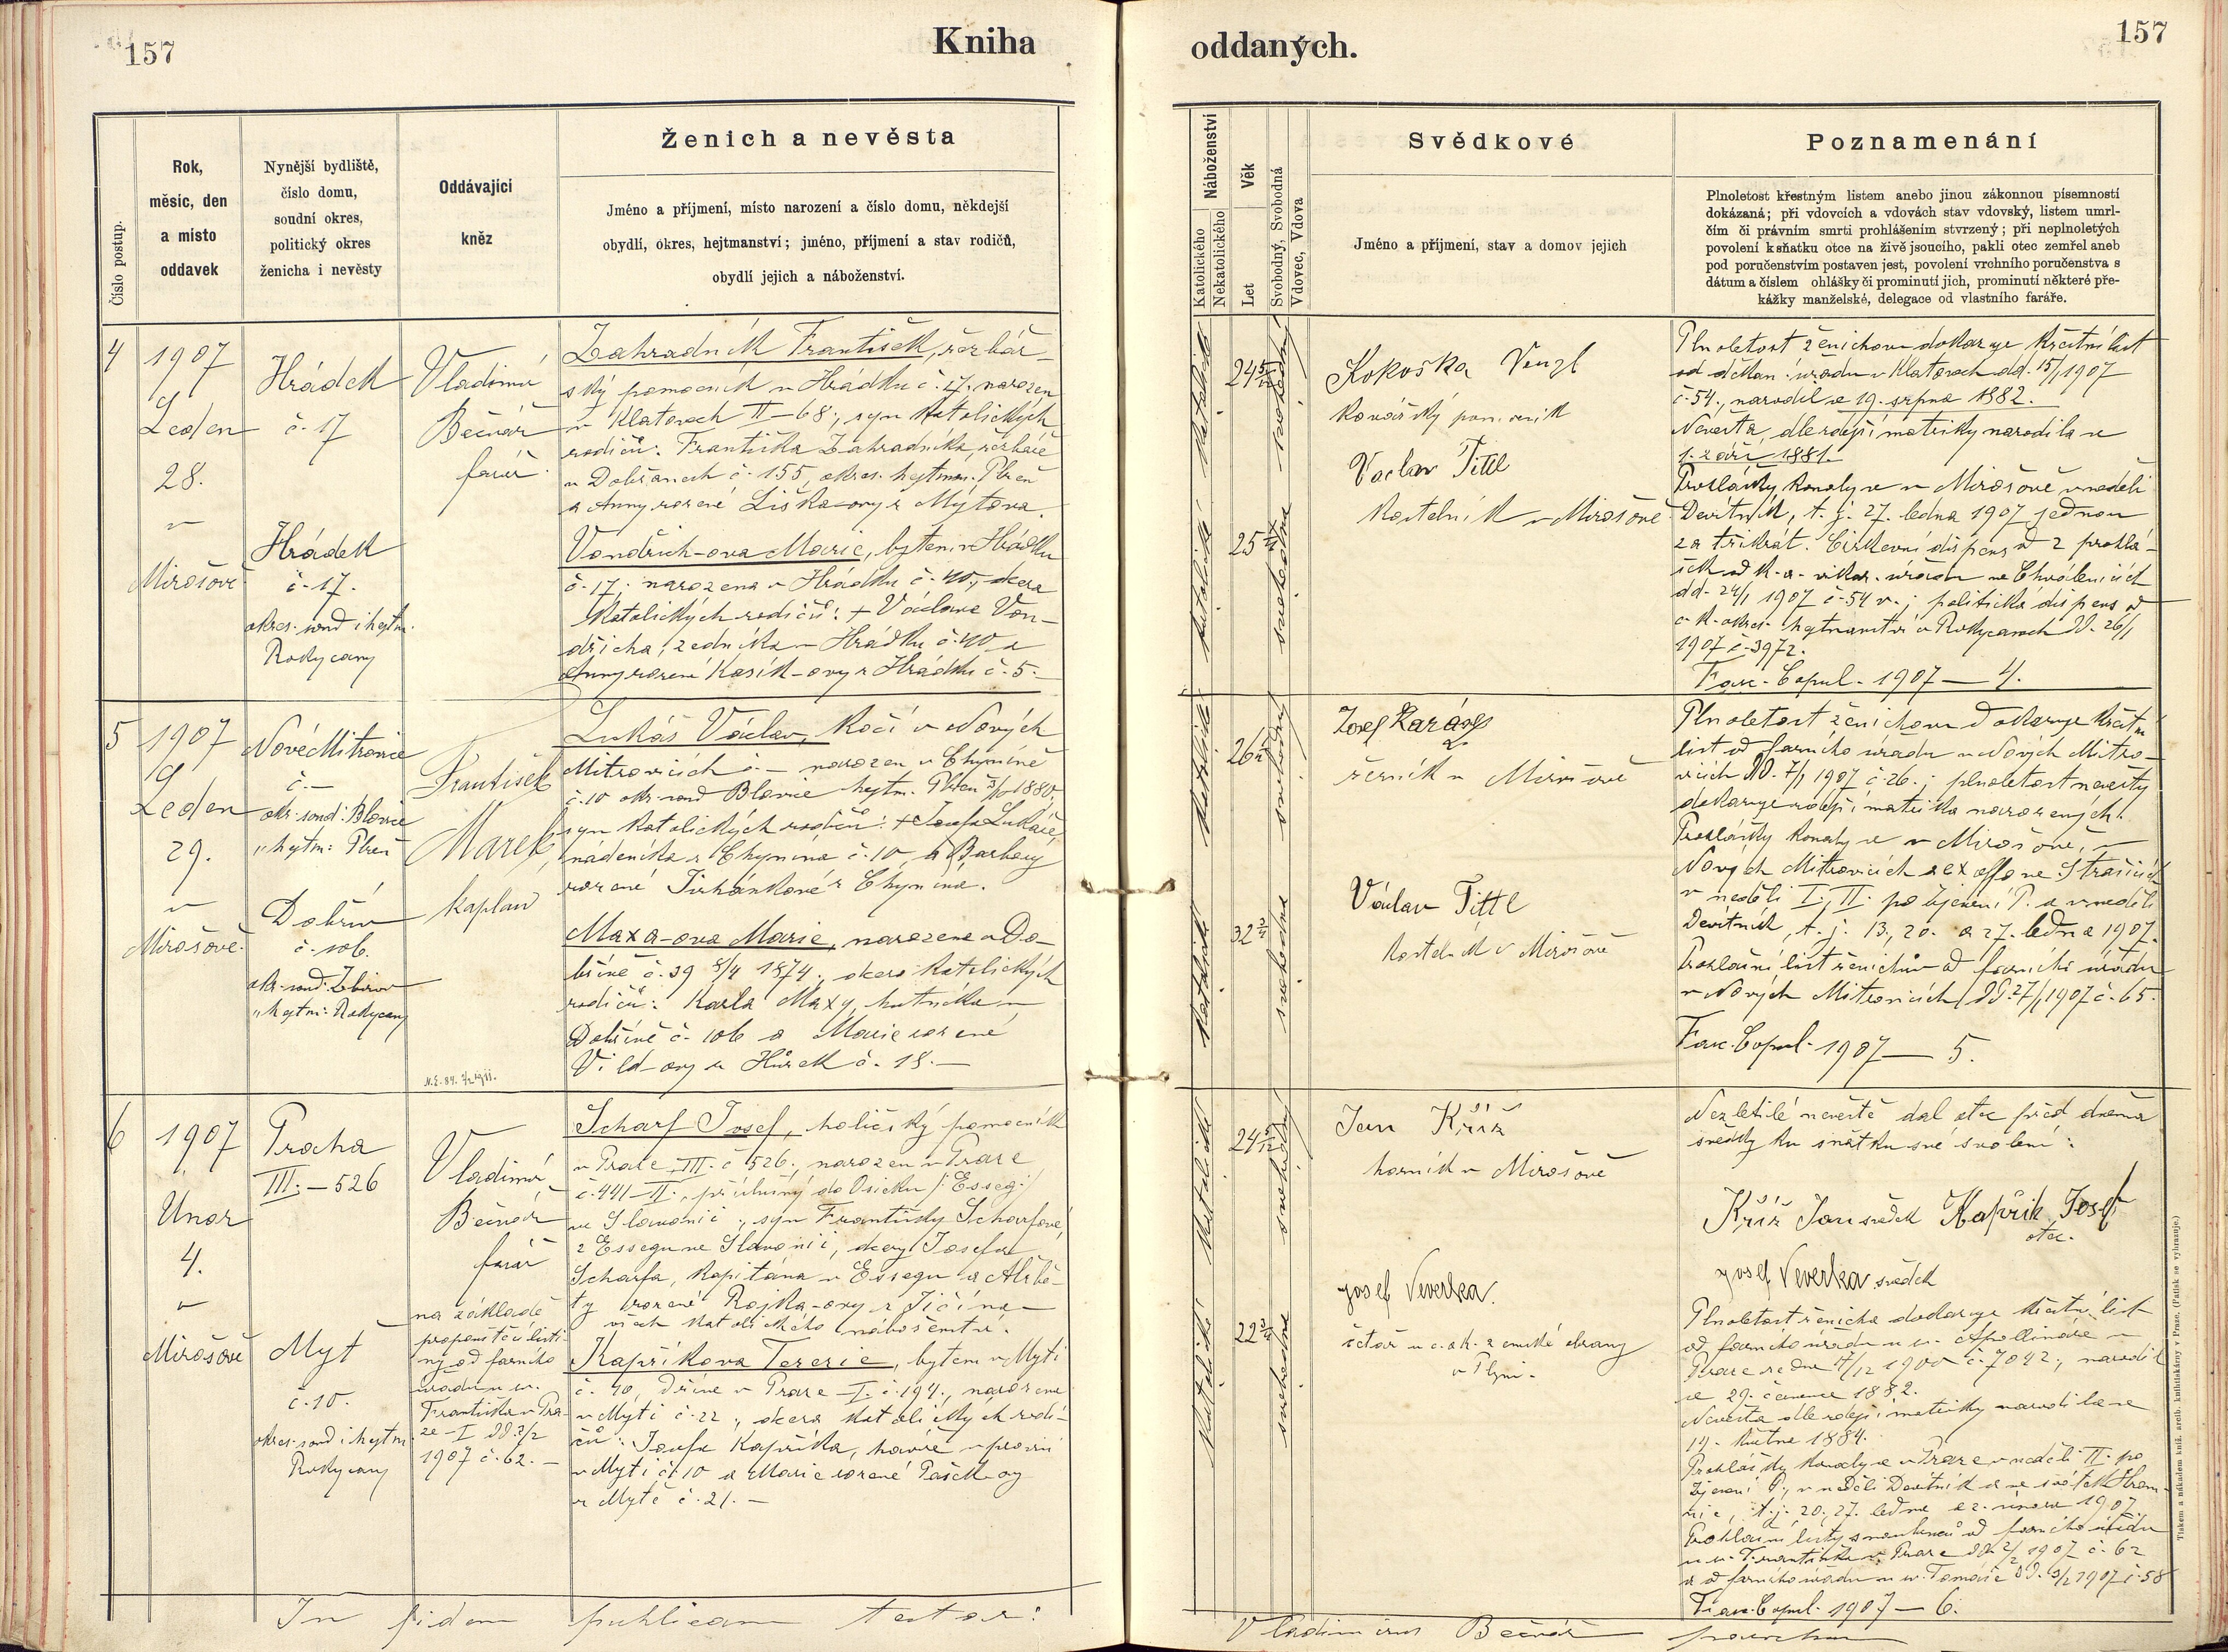 157
Kniha
Číslo postup.
Rok,
měsic, den
a místo
oddavek
Nynější bydliště,
číslo domu,
soudní okres,
politický okres
ženicha i nevěsty
Oddávajíci
kněz
Ženich a nevěsta
Jméno a příjmení, místo narození a číslo domu, někdejší
obydlí, okres, hejtmanství; jméno, příjmení a stav rodičů,
obydlí jejich a náboženství.
4
1907
Leden
28.
v
Mirošově
Hrádek
č. 17
Hrádek
č. 17.
okres. soud i hejtm.
Rokycany
Vladimír
Bečvář
farář.
Zahradník František, řezbář-
ský pomocník v Hrádku č. 17, narozen
v Klatovech II–68., syn katolických
rodičů: Františka Zahradníka, řezbáře
v Dobřanech č. 155, okres. hejtman. Plzeň
a Anny rozené Liška-ovy z Mýtova.
Vondřich-ova Marie, bytem v Hrádku
č. 17., narozena v Hrádku č. 40., dcera
katolických rodičů: + Václava Von-
dřicha, zedníka v Hrádku č. 40 a
Anny rozené Kasík-ovy z Hrádku č. 5.–
5
1907
Leden
29.
v
Mirošově.
Nové Mitrovice
č. –
okr. soud: Blovice
„ hejtm: Plzeň
Dobřív
č. 106.
okr. soud. Zbirov
„ hejtm: Rokycany
František
Marek,
kaplan
N.E. 84.
Lukáš Václav, kočí v Nových
Mitrovicích č. – narozen v Chyníně
č. 10 okr. soud Blovice hejtm. Plzeň 1880,
syn katolických rodičů: + Josefa Lukáše,
nádeníka z Chynína č. 10, a Barbory
rozené Tirhánkové z Chynína.
Maxa-ova Marie, narozena v Do-
břívě č. 39 8/4 1874., dcera katolických
rodičů: Karla Maxy, hutníka v
Dobřívě č. 106 a Marie rozené
Vild-ovy z Hůrek č. 18. –
6
1907
Únor
4.
v
Mirošově
Praha
III. – 526
Mýť
č. 10.
okres. soud i hejtm.
Rokycany
Vladimír
Bečvář
farář
na základě
propouštěcí listi-
ny od farního
úřadu u sv.
Františka v Pra-
ze – I dd. 2/2
1907 č. 62. –
Scharf Josef, holičský pomocník
v Praze III. č 526., narozen v Praze
č. 441–II., příslušný do Osieku /:Esseg:/
ve Slavonii., syn Františky Scharfové,
z Essegu ve Slavonii, dcery Josefa
Scharfa, kapitána v Essegu a Alžbě-
ty rozené Rojka-ovy z Jičína –
všech katolického náboženství.
Kapříkova Terezie, bytem v Mýti
č. 10, dříve v Praze – I. č. 194., narozena
v Mýti č. 22., dcera katolických rodi-
čů: Josefa Kapříka, havíře
v Mýti č. 10 a Marie rozené Pašek-ovy
z Mýtě č. 21. –
In fidem publicam testor:
oddaných.
157
Náboženství
Katolického
Nekatolického
Věk
Let
Svobodný, Svobodná
Vdovec, Vdova
Svědkové
Jméno a příjmení, stav a domov jejich
Poznamenání
Plnoletost křestným listem anebo jinou zákonnou písemností
dokázaná; při vdovcích a vdovách stav vdovský, listem umrl-
čím či právním smrti prohlášením stvrzený; při neplnoletých
povolení k sňatku otce na živě jsoucího, pakli otec zemřel aneb
pod poručenstvím postaven jest, povolení vrchního poručenstva s
dátum a číslem ohlášky či prominutí jich, prominutí některé pře-
kážky manželské, delegace od vlastního faráře.
katolické
24 5/12
svobodný
katolické
25
svobodna
Kokoška Venzl
kovářský pomocník
Vaclav Tittl
Kostelník v Mirošově
Plnoletost ženichovu dokazuje křestní list
od děkan. úřadu v Klatovech dd. 15/1 1907
č. 54., narodil se 19. srpna 1882.
Nevěsta dle zdejší matriky narodila se
1. září 1881.
Prohlášky konaly se v Mirošově v neděli
Devítník, t. j. 27. ledna 1907 jednou
za třikrát. Církevní dispens od 2 prohlá-
šek od k. a. vikar. úřadu ve Chválenicích
dd. 24/1 1907 č. 54 v.; politická dispens od
c. k. okres. hejtmanství v Rokycanech dd. 26/1
1907 č. 3972.
Fasc. Copul. 1907 — 4.
katolické
26
svobodný
katolické
32
svobodna
Josef Karásy
řezník v Mirošově
Václav Tittl
kostelník v Mirošově
Plnoletost ženichovu dokazuje křestní
list od farního úřadu v Nových Mitro-
vicích dd. 7/1 1907 č. 26.; plnoletost nevěsty
dokazuje zdejší matrika narozených.
Prohlášky konaly se v Mirošově, v
Nových Mitrovicích a ex offo ve Strašicích
v neděli I., II. po Zjevení P. a v neděli
Devítník, t. j. 13., 20. a 27. ledna 1907.
Prohlašní list ženichův od farního úřadu
v Nových Mitrovicích dd. 27/1 1907 č. 65.
Fasc. Copul. 1907 — 5.
katolické
24 5/12
svobodný
katolické
22
svobodna
Jan Kříž
horník v Mirošově
Josef Veverka.
četař u c. ok. zemské obrany
v Plzni.
Nezletilé nevěstě dal otec před dvěma
svědky ku sňatku své svolení:
Kříž Jan svědek Kapřik Josef
otec.
Josef Veverka svědek
Plnoletost ženicha dokazuje křestní list
od farního úřadu u sv. Apollináře v
Praze ze dne 4/12 1900 č. 7042., narodil
se 29. července 1882.
Nevěsta dle zdejší matriky narodila se
14. května 1884.
Prohlášky konaly se v Praze v neděli II. po
Zjevení P., v neděli Devítník a ve svátek Hrom-
nic, t. j. 20. 27. ledna a 2. února 1907.
Prohlašní listy snoubenců od farního úřadu
u sv. Františka v Praze dd. 2/2 1907 č. 62
a od farního úřadu u sv. Tomáše dd. 3/2 1907 č. 58
Fasc. Copul. 1907 — 6.
Vladimirus Bečvář parochus
Tiskem a nákladem kníž. arcib. knihtiskárny v Praze. (Patisk se vyhrazuje.)